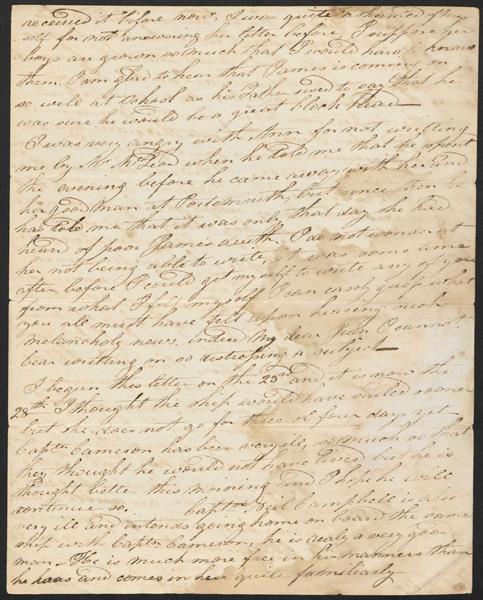 received it before now, I was quite ashamed of my
self for not answering her letter before I suppose her
boys are grown so much that I would hardly know
them. I am glad to hear that James is coming on
so well at School as his Father used to say that he
was sure he would be a great block head
I was very angry with Ann for not writting
me by Mr McLeod when he told me that he spent
the evening before he came away with her and
her good man at Portsmouth, but since then he
has told me that it was only that day she had
heard of poor James death. I do not wonder at
her not being able to write, it was some time
after before I could get myself to write any of you
from what I felt myself I can easely guess what
you all must have felt upon hearing such
melancholy news. indeed My dear Jean I cannot
bear writting on so distressing a subject
I began this letter on the 23rd and it is now the
28th I thought the ship would have sailed sooner
but she does not go for three or four days yet
Captn Cameron has been very ill, so much so that
they thought he would not have lived but he is
thought better this morning and I hope he will
continue so. Captn Neil Campbell is also
very ill and intends going home on board the same
ship with Captn Cameron, he is realy a very good
man. He is much more free in his manners than
he was and comes in here quite familiarly